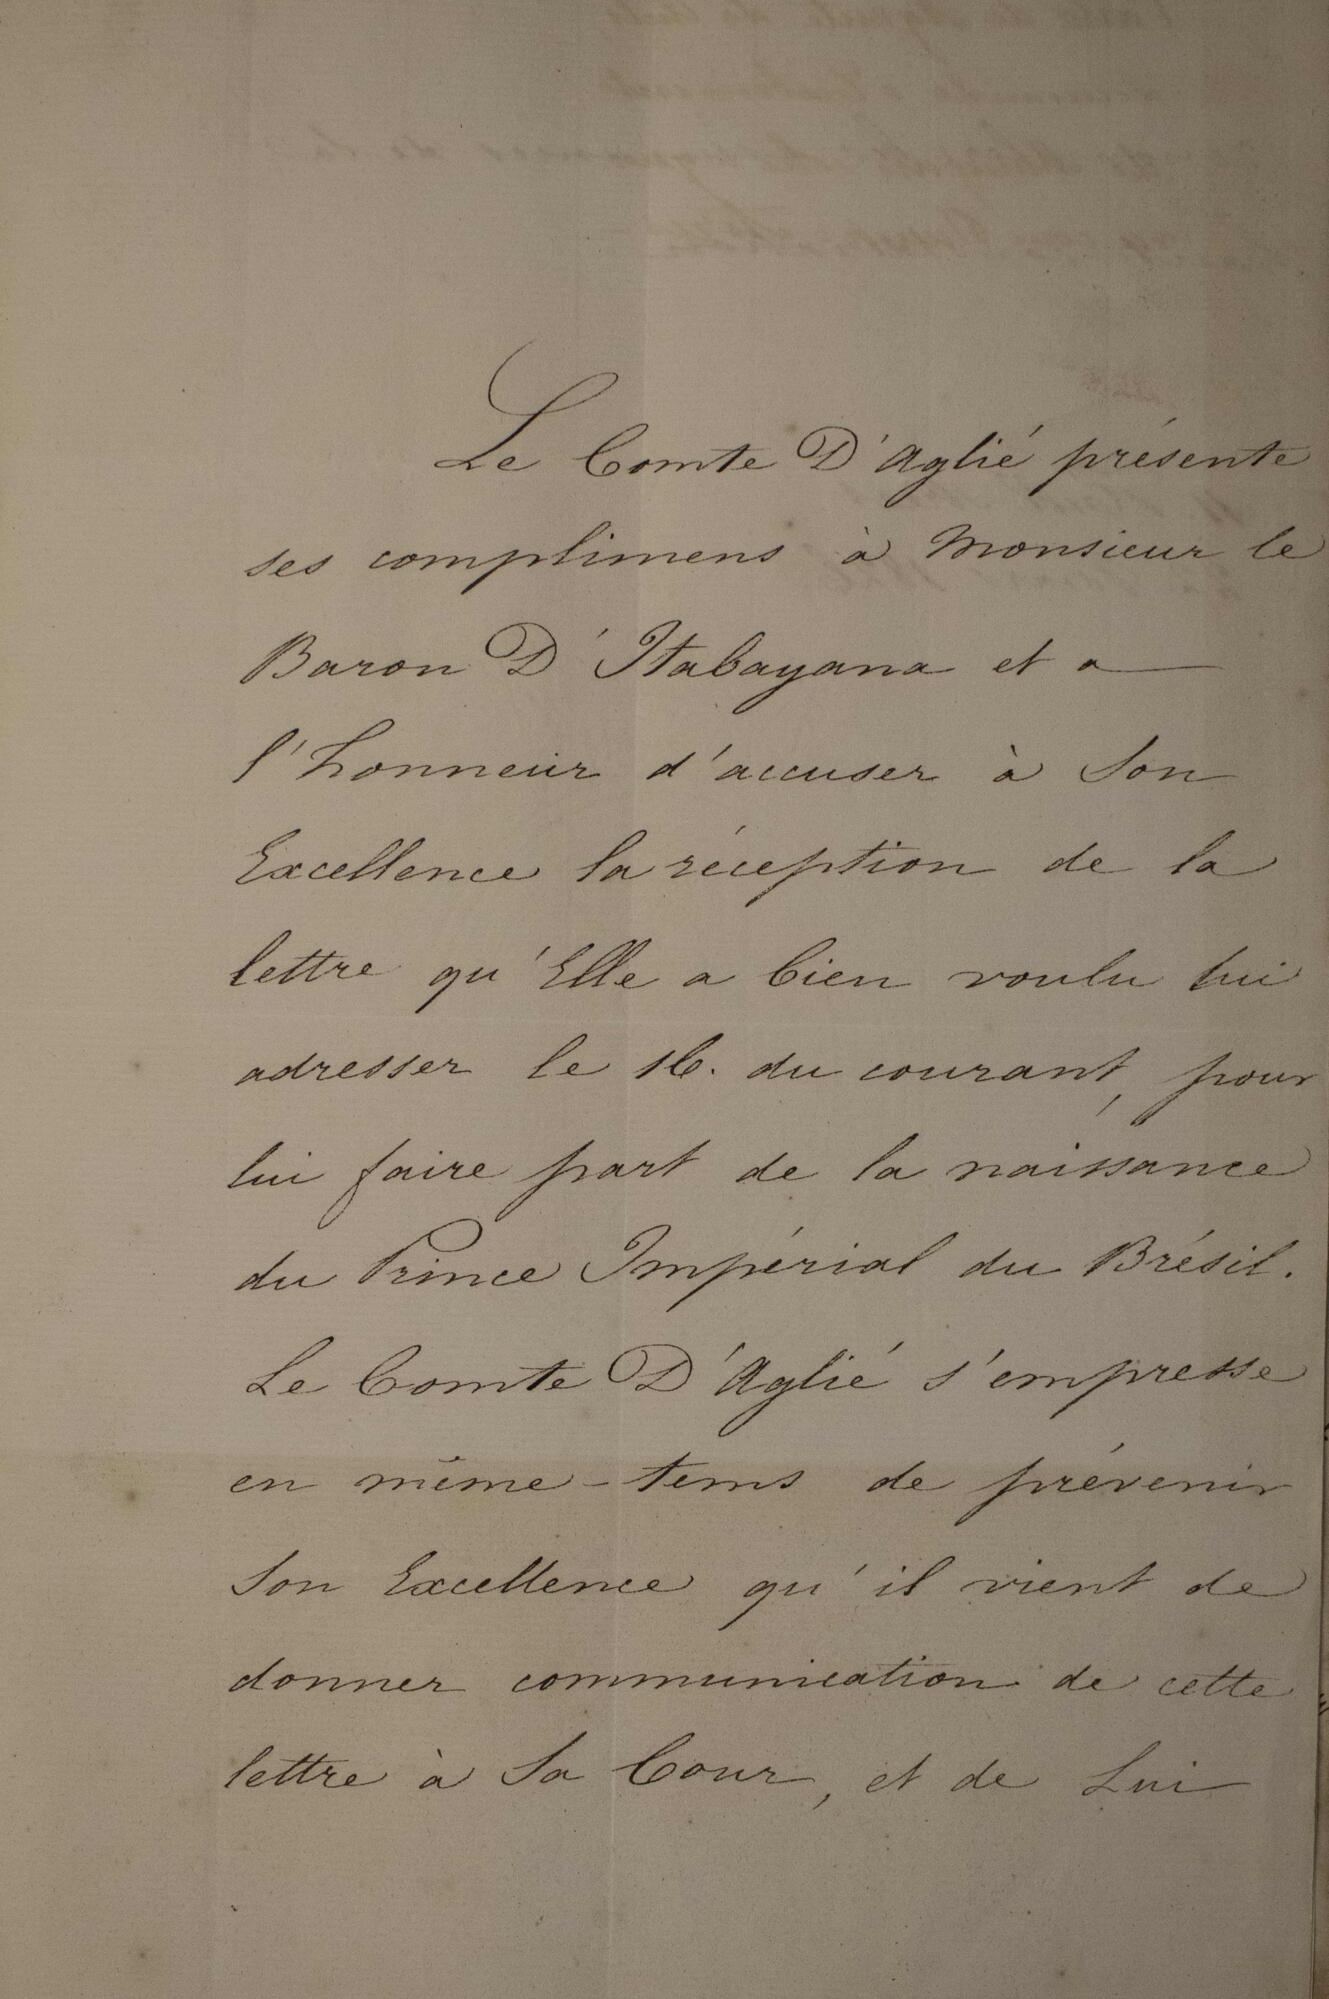 Le Comte D'Aglié présente
ses complimens à Monsieur le
Baron D'Itabayana et a
l'honneur d'accuser à Son
Excellence la réception de la
lettre qu'Elle a bien voulu lui
adresser le 16. du courant, pour
lui faire part de la naissance
du Prince Impérial du Brésil.
Le Comte D'Aglié s'empresse
en même-tems de prévenir
Son Excellence qu'il vient de
donner communication de cette
lettre à Sa Cour, et de Lui